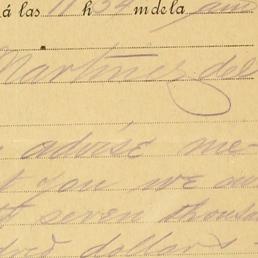 á las 11 h 54 m de la
Martinez del
advise me
you we
seven thousand
dollars